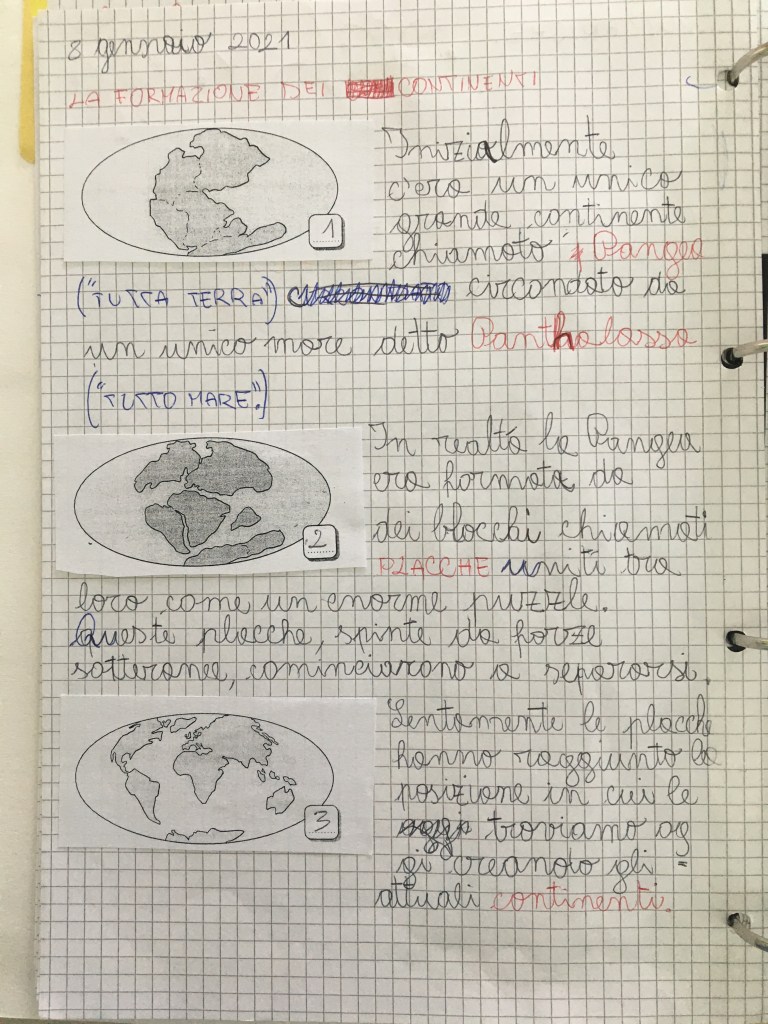 8 gennaio 2021
LA FORMAZIONE DEI CONTINENTI
Inizialmente
c'era un unico
grande continente
chiamato Pangea
("TUTTA TERRA") circondato da
un unico mare detto Panthalassa
("TUTTO MARE".)
1
In realtà la Pangea
era formata da
dei blocchi chiamati
PLACCHE uniti tra
loro come un enorme puzzle.
Queste placche, spinte da forze
sotteranee, cominciarono a separarsi.
2
Lentamente le placche
hanno raggiunto la
posizione in cui le
troviamo og
gi creando gli =
attuali continenti.
3